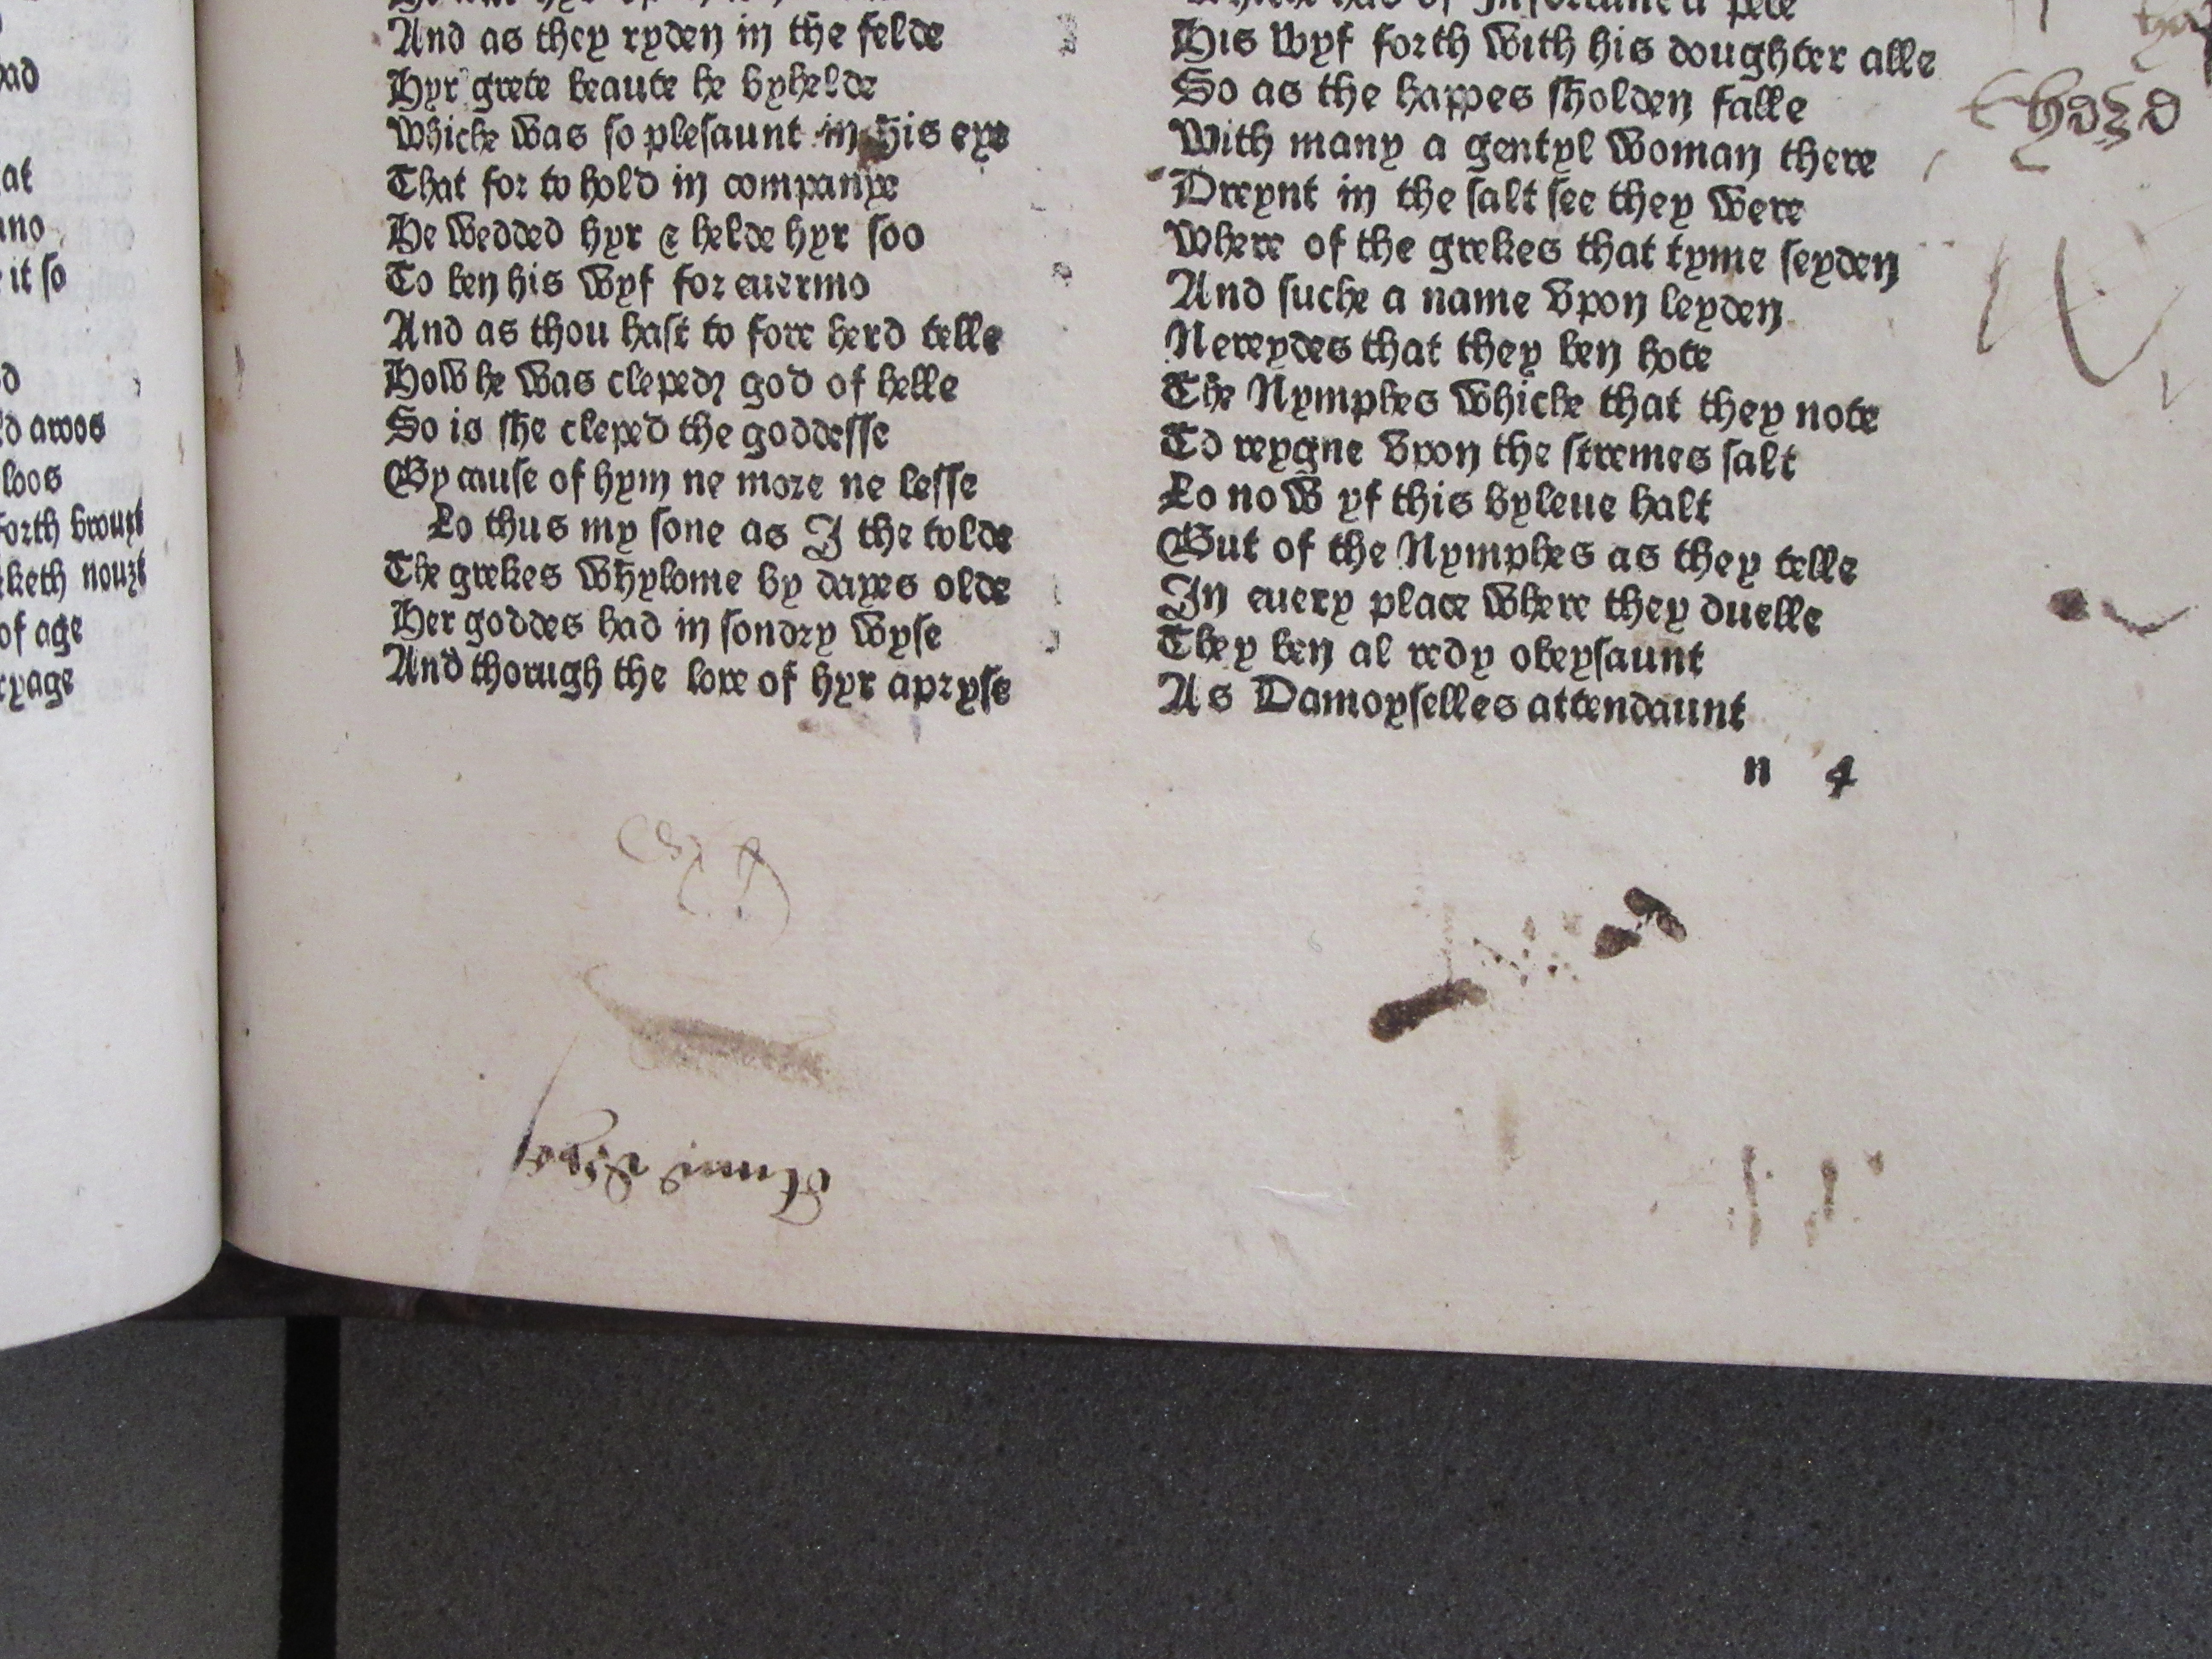 ad
at
no
it so
d
d aroos
loos
forth brouȝt
keth nouȝt
of age
ryage
And as they ryden in the felde
Hyr grete beaute he byhelde
Whiche was so plesaunt in his eye
That for to hold in companye
He wedded hyr & helde hyr soo
To ben his wyf for euermo
And as thou hast to fore herd telle
How he was cleped god of helle
So is she cleped the goddesse
By cause of hym ne more ne lesse
Lo thus my sone as I the tolde
The grekes whylome by dayes olde
Her goddes had in sondry wyse
And thorugh the lore of hyr apryse
His wyf forth with his doughter alle
So as the happes sholden falle
With many a gentyl woman there
Dreynt in the salt see they were
Where of the grekes that tyme seyden
And suche a name vpon leyden
Nereydes that they ben hote
The Nymphes whiche that they note
To reygne vpon the stremes salt
Lo now yf this byleue halt
But of the Nymphes as they telle
In euery place where they duelle
They ben al redy obeysaunt
As Damoyselles attendaunt
n 4